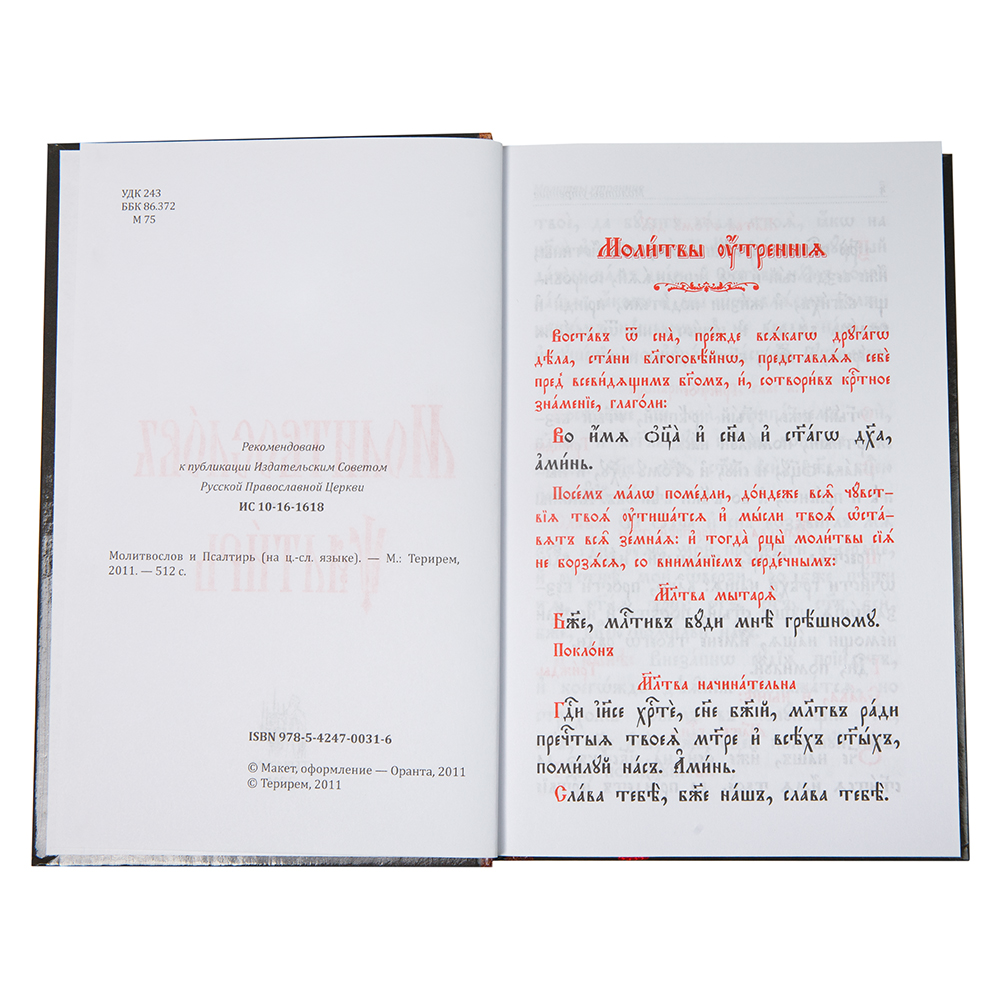 УДК 243
ББК 86.372
М 75
Рекомендовано
к публикации Издательским Советом
Русской Православной Церкви
ИС 10-16-1618
Молитвослов и Псалтирь (на ц.-сл. языке). — М.: Терирем,
2011. — 512 с.
ISBN 978-5-4247-0031-6
© Макет, оформление — Оранта, 2011
© Терирем, 2011
Моли́твы ᲂу҆́трєннїѧ
Воста́въ ѿ сна̀, пре́жде всѧ́кагѡ дрꙋга́гѡ
дѣ́ла, ста́ни бл҃гоговѣ́йнѡ, представлѧ́ѧ себѐ
пред̾ всеви́дѧщимъ бг҃омъ, и҆, сотвори́въ кртⷭ҇ное
зна́менїе, глаго́ли:
Во и҆́мѧ ѻ҆ц҃а̀ и҆ сн҃а и҆ ст҃а́гѡ дх҃а,
а҆ми́нь.
Посе́мъ ма́лѡ поме́дли, до́ндеже всѧ̑ чꙋ̑вст-
вїѧ твоѧ̑ ᲂу҆тиша́тсѧ и҆ мы̑сли твоѧ̑ ѡ҆ста́-
вѧтъ всѧ̑ земна̑ѧ: и҆ тогда̀ рцы̀ моли̑твы сїѧ̑
не борзѧ́сѧ, со внима́нїемъ серде́чнымъ:
Мл҃тва мытарѧ̀
Бж҃е, млⷭ҇тивъ бꙋ́ди мнѣ̀ грѣ́шномꙋ.
Покло́нъ
Мл҃тва начина́тельна
Гдⷭ҇и і҆и҃се хрⷭ҇тѐ, сн҃е бж҃їй, мл҃твъ ра́ди
пречⷭ҇тыѧ твоеѧ̀ мт҃ре и҆ всѣ́хъ ст҃ы́хъ,
поми́лꙋй на́съ. А҆ми́нь.
Сла́ва тебѣ̀, бж҃е на́шъ, сла́ва тебѣ̀.